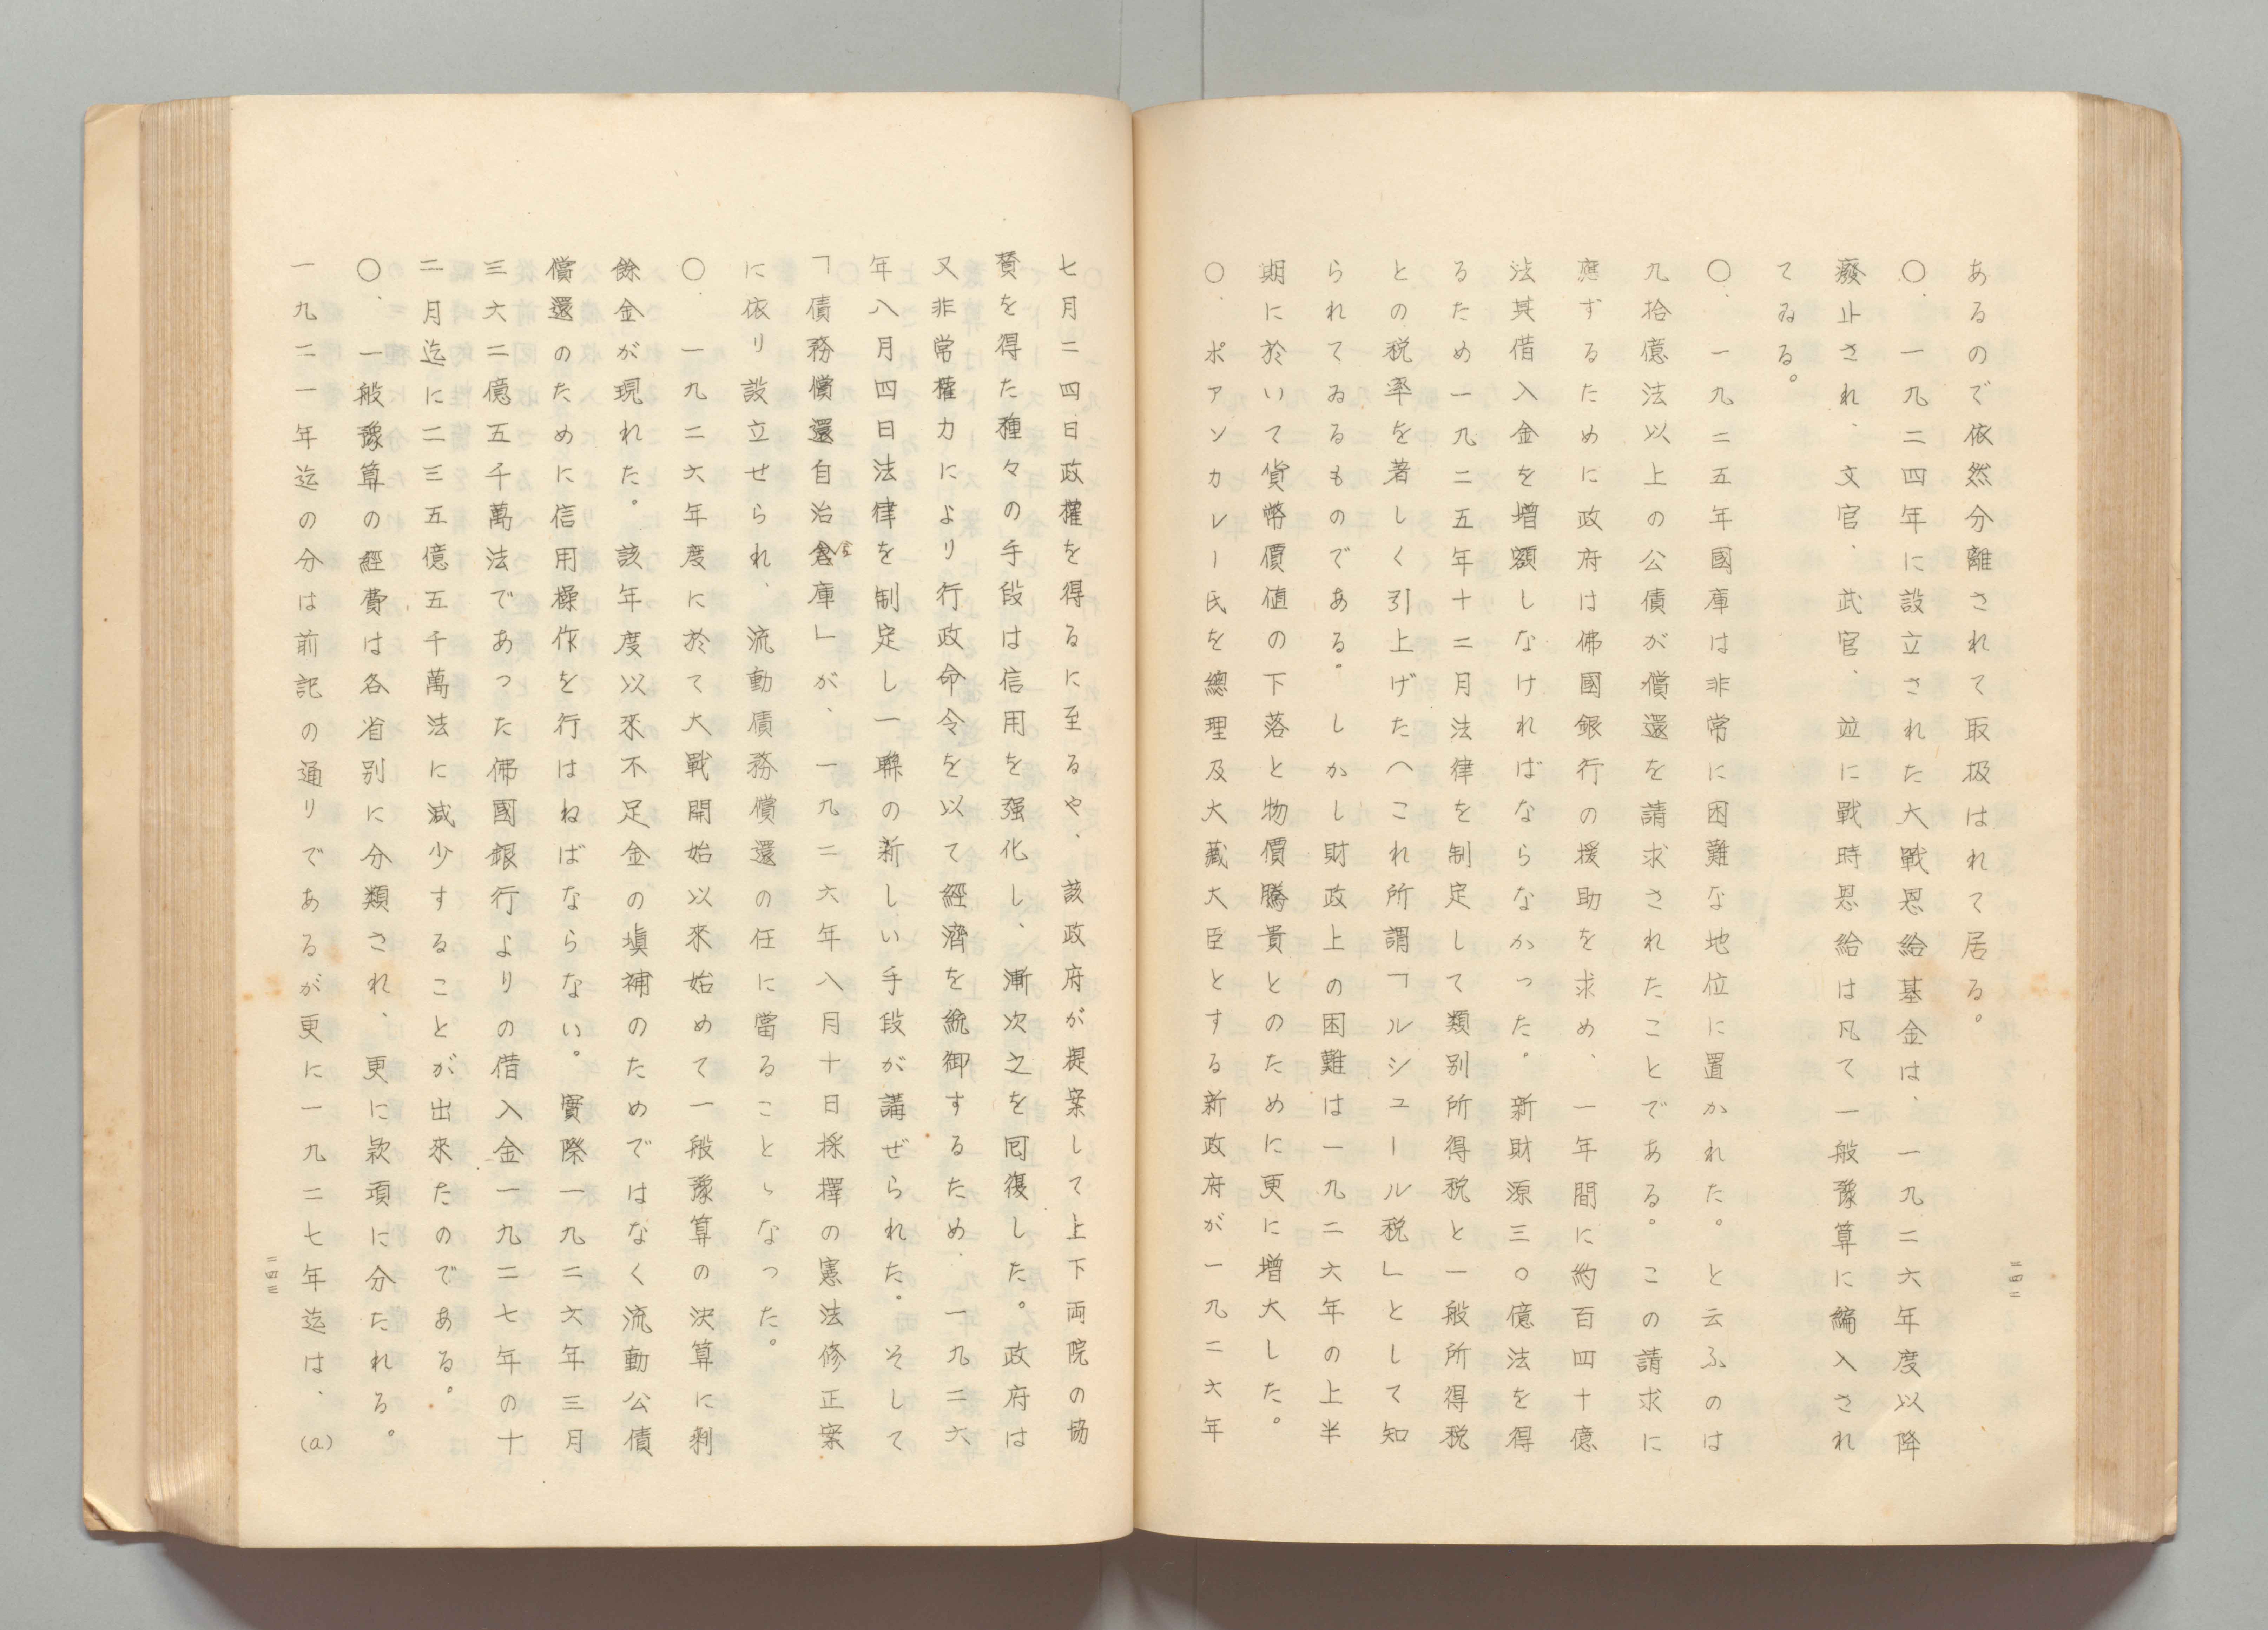 あるので依然分離されて取扱はれて居る。
〇、一九二四年に設立された大戰恩給基金は、一九二六年度以降
癈止され、文官、武官、並に戰時恩給は凡て一般豫算に編入され
てゐる。
〇、一九二五年國庫は非常に困難な地位に置かれた。と云ふのは
九拾億法以上の公債が償還を請求されたことである。この請求に
應ずるために政府は佛國銀行の援助を求め、一年間に約百四十億
法其借入金を増額しなければならなかった。新財源三〇億法を得
るため一九二五年十二月法律を制定して類別所得税と一般所得税
との税率を著しく引上げたへこれ所謂「ルシュール税」として知
られてゐるものである。しかし財政上の困難は一九二六年の上半
期に於いて貨幣價値の下落と物價騰貴とのために更に増大した。
〇、ポアンカレー氏を總理及大藏大臣とする新政府が一九二六年
二四二
七月二四日政權を得るに至るや、該政府が提案して上下両院の協
賛を得た種々の手段は信用を强化し、漸次之を囘復した。政府は
又非常權力により行政命令を以て經濟を統御するため、一九二六
年八月四日法律を制定し一聯の新しい手段が講ぜられた。そして
「債務償還自治倉庫」が、一九二六年八月十日採擇の憲法修正案
金
に依り設立せられ、流動債務償還の任に當ることゝなった。
〇、一九二六年度に於て大戰開始以來始めて一般豫算の決算に剩
餘金が現れた。該年度以來不足金の塡補のためではなく流動公債
償還のために信用操作を行はねばならない。實際一九二六年三月
三六二億五千萬法であった佛國銀行よりの借入金一九二七年の十
二月迄に二三五億五千萬法に減少することが出來たのである。
〇、一般豫算の經費は各省別に分類され、更に款項に分たれる。
一九二一年迄の分は前記の通りであるが更に一九二七年迄は、(a)
二四三